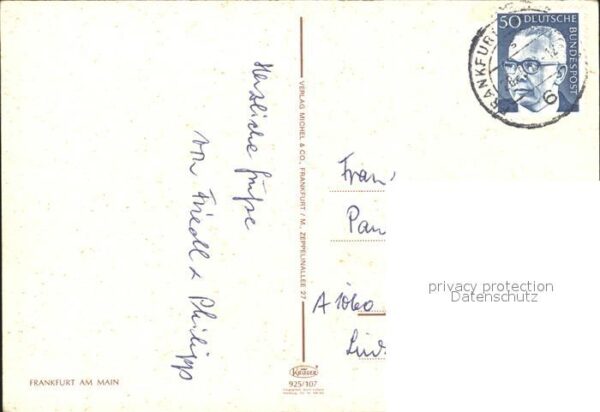 50 DEUTSCHE
BUNDESPOST
FRANKFUR
6
Herzliche Grüße
von Friedl & Philipp
VERLAG MICHEL & CO., FRANKFURT / M., ZEPPELINALLEE 27
Fran
Pau
A 1060
privacy protection
Datenschutz
Krüger
925/107
FRANKFURT AM MAIN